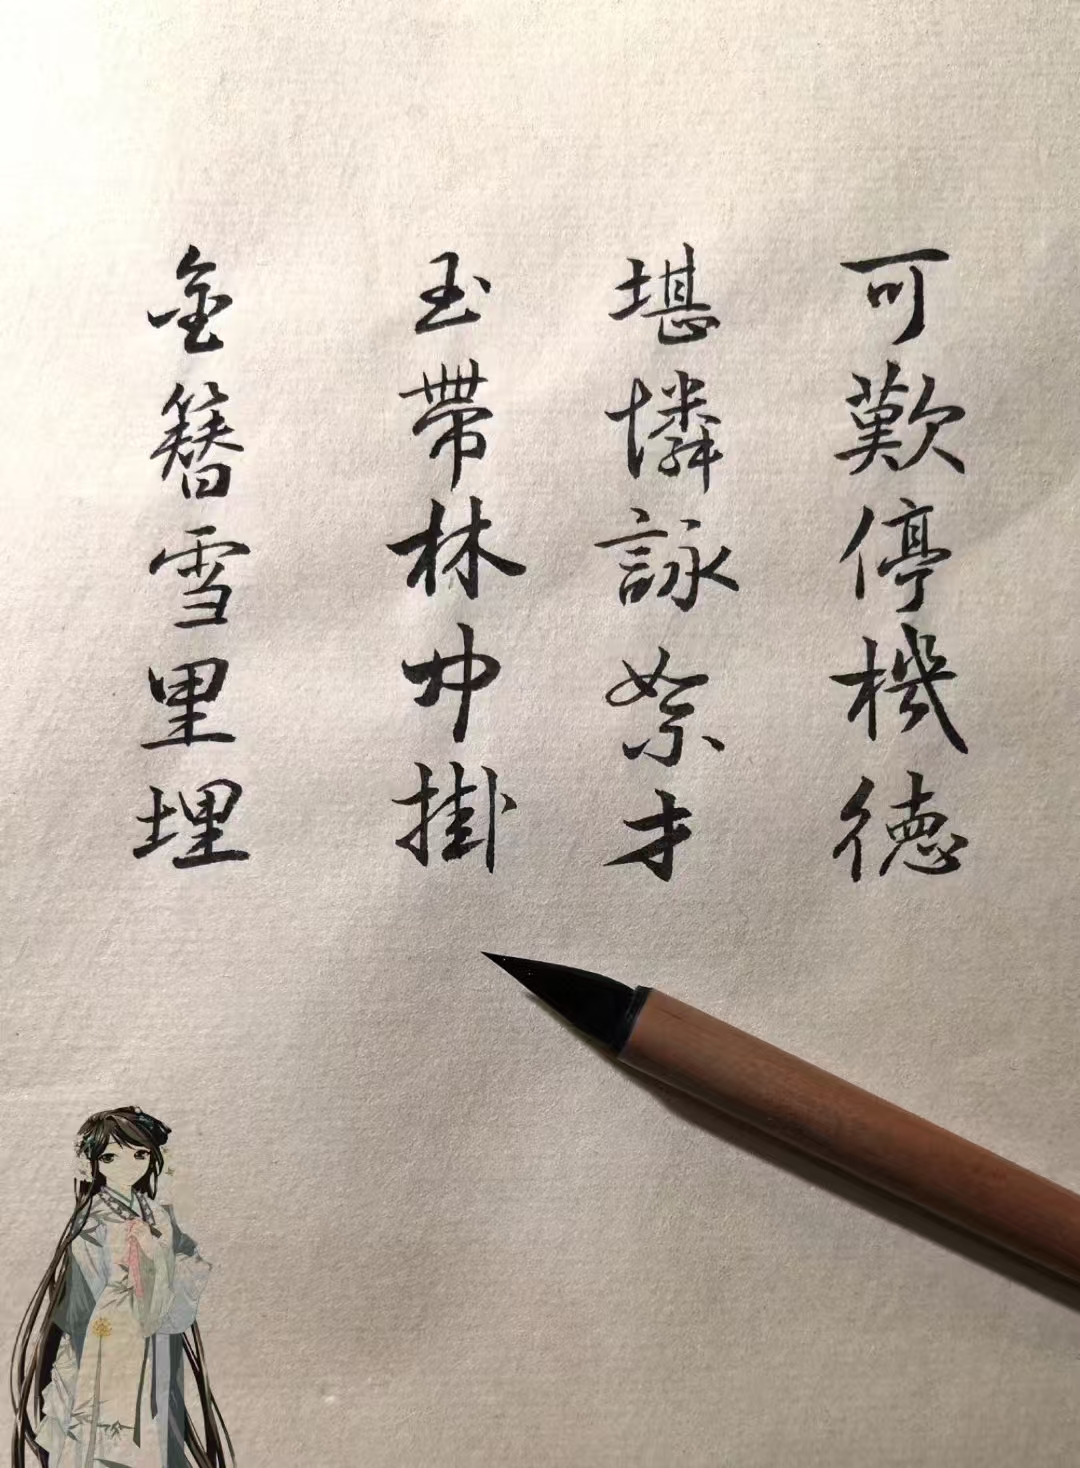 可歎停機德
堪憐詠絮才
玉帶林中掛
金簪雪里埋